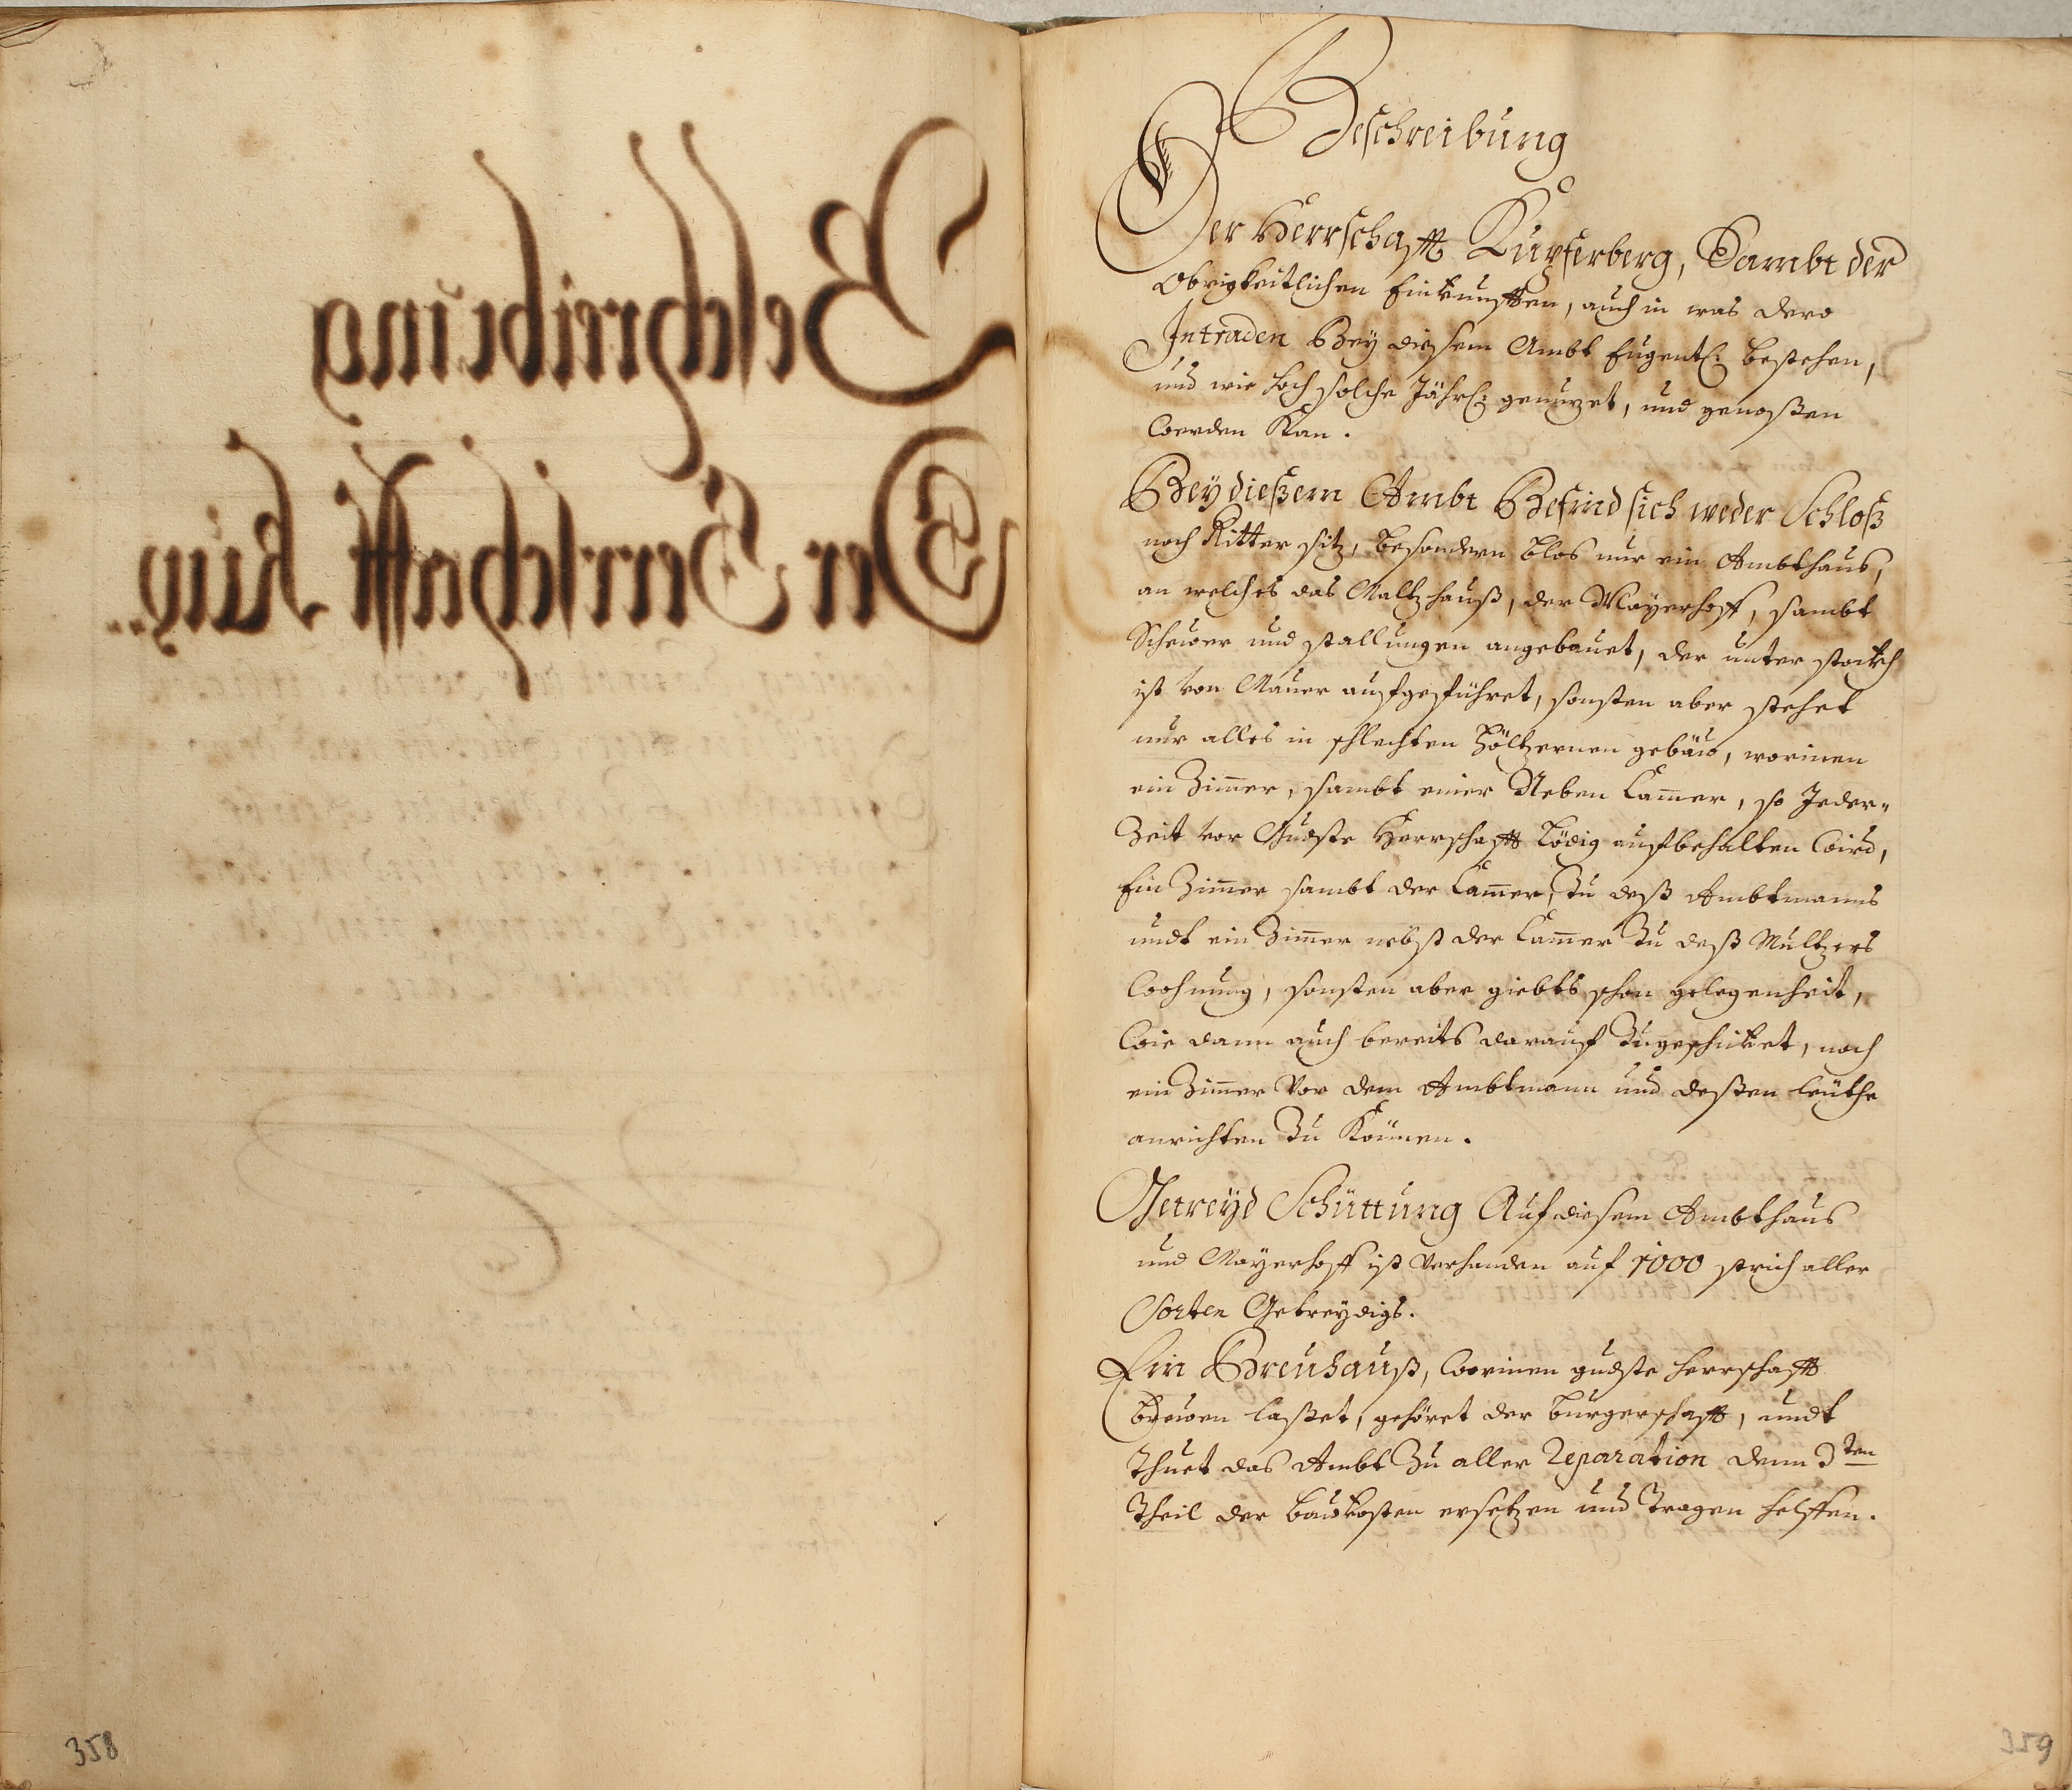 Beschreibung
Der Herrschafft Kupferberg, Sambt der
Obrigkeitlichen Einkunfften, auch in was dero
Intraden Bey diesem Ambt Eugentl: bestehen,
und wie hoch solche Jährl: genuzet, und genoßen
werden Kan.
Beÿ dießem Ambt Befind sich weder Schloß
noch Ritter sitz, besondern blos nur ein Ambthaus,
an welches das Maltzhauß, der Mayerhoff, sambt
Scheuer und stallungen angebauet, der unter stockh
ist von Mauer aufgeführet, sonsten aber stehet
nur alles in schlechten höltzernen gebäu, worinen
ein Zimer, sambt einer Neben Camer, so Jeder-
Zeit vor Gndste Herrschafft lödig aufbehalten wird,
Ein Zimer sambt der Camer, Zu deß Ambtmanns
undt ein Zimer nebst der Camer Zu deß Multzers
wohnung, sonsten aber giebts schon gelegenheit,
wie dann auch bereits darauf Zugeschicket, noch
ein Zimer vor dem Ambtmann und deßen leüthe
anrichten Zu Können.
Getreÿd Schüttung Auf diesem Ambthaus
und Mayerhoff ist verhanden auf 1000 strich aller
Sorten Getreydigs.
Ein Breuhauß, worinen gndste herrschafft
breuen laßet, gehöret der burgerschafft, undt
Thuet das Ambt Zu aller Reparation denn 3ten
Theil der baukosten ersetzen und Tragen helffen.
358
359